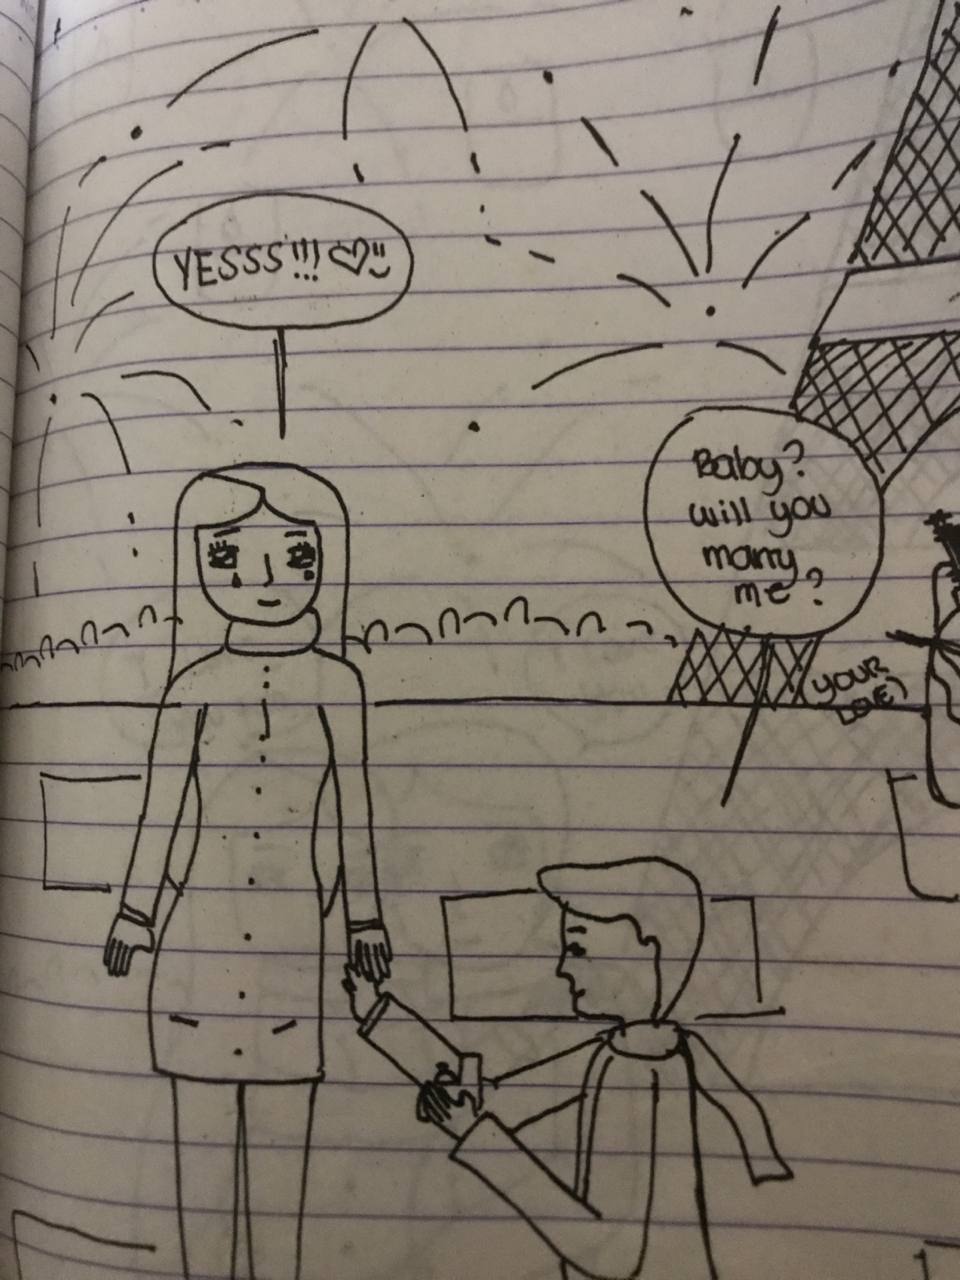 YESSS!!! ♡
Baby?
will you
marry
me?
YOUR
LOVE)